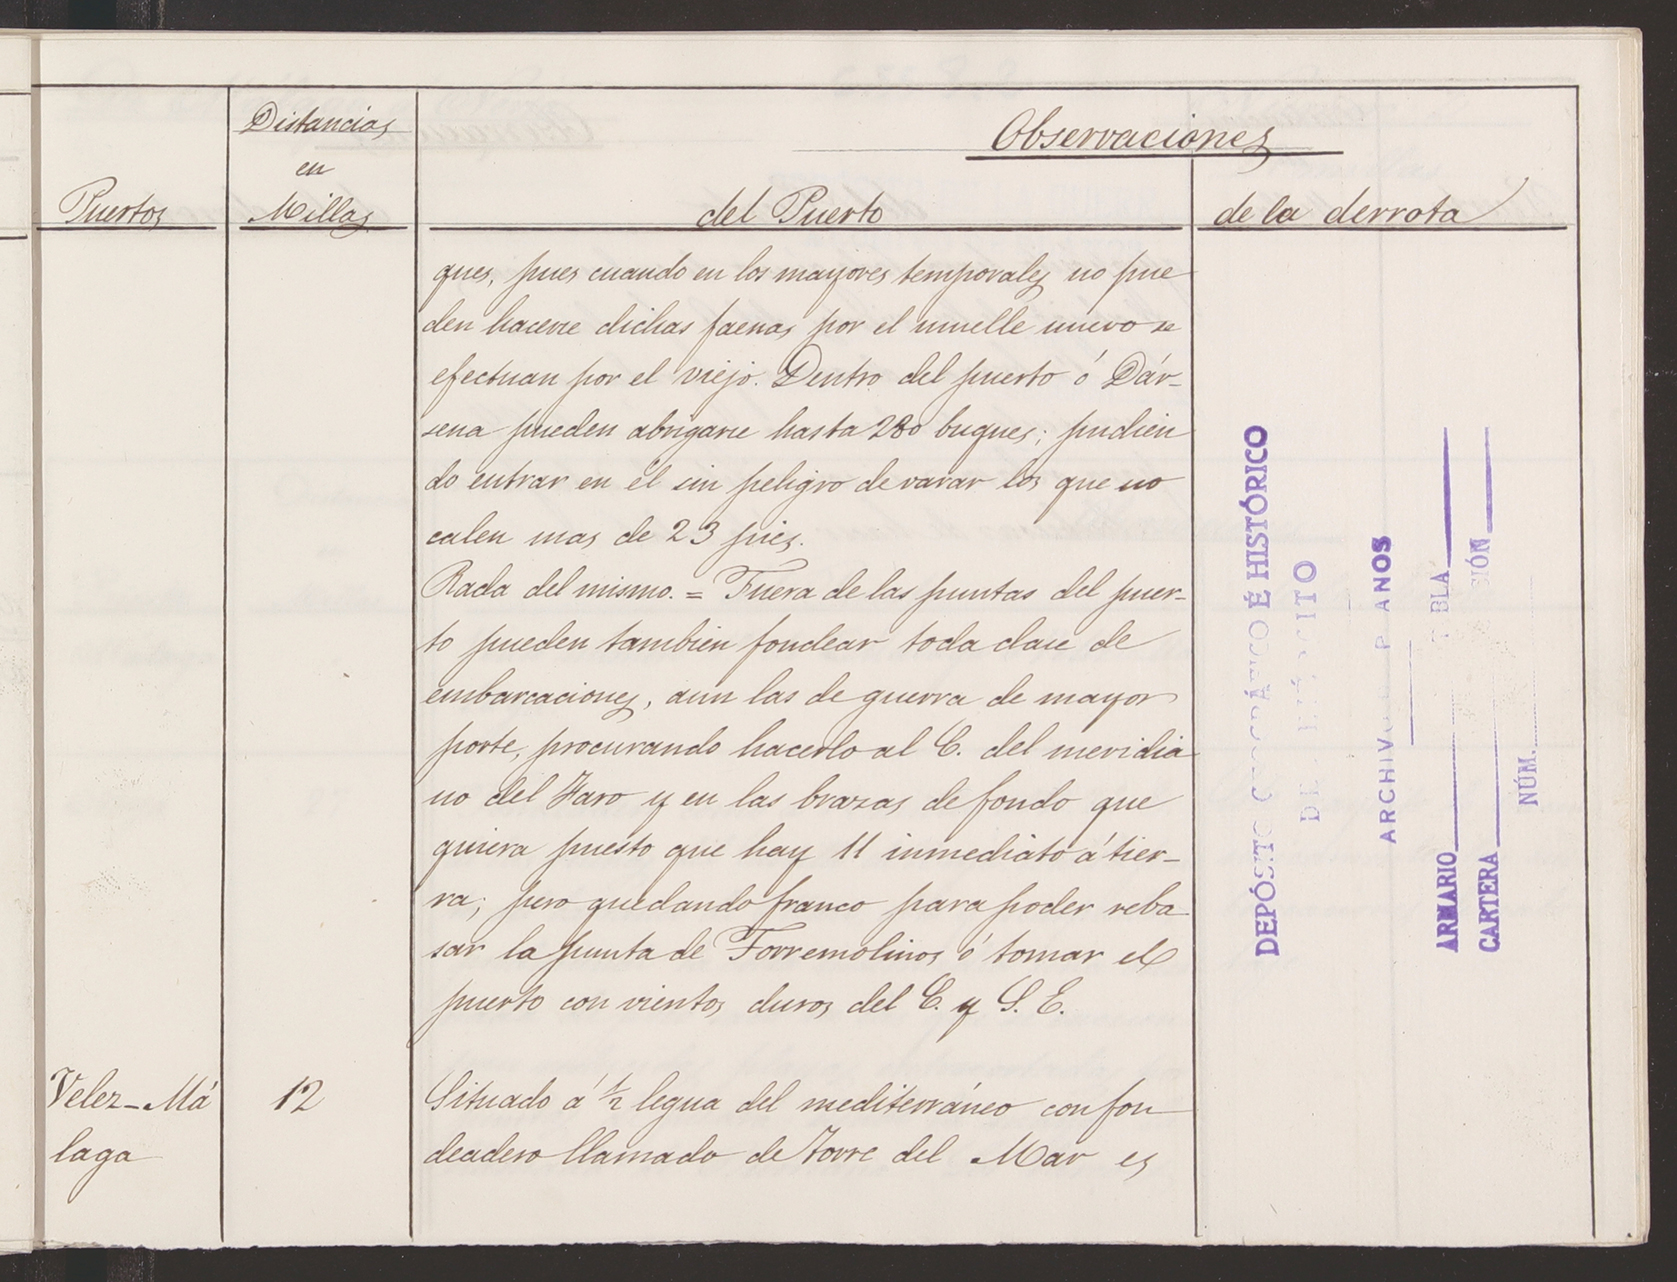 Distancias
Observaciones
en
Puertos
Millas
del Puerto
de la derrota
ques, pues cuando en los mayores temporales no pue
den hacerse dichas faenas por el muelle nuevo se
efectuan por el viejo. Dentro del puerto ó Dár-
sena pueden abrigarse hasta 280 buques; pudien
do entrar en él sin peligro de varar los que no
calen mas de 23 pies.
Rada del mismo. = Fuera de las puntas del puer-
to pueden tambien fondear toda clase de
embarcaciones, aun las de guerra de mayor
porte, procurando hacerlo al E. del meridia
no del Faro y en las brazas de fondo que
quiera puesto que hay 11 inmediato á tier-
ra; pero quedando franco para poder reba
sar la punta de Torremolinos ó tomar el
puerto con vientos duros del E. y S. E.
Velez-Má
12
Situado á 1/2 legua del mediterráneo con fon
laga
deadero llamado de Torre del Mar es
DEPÓSITO GEOGRÁFICO É HISTÓRICO
DEL EJÉRCITO
ARCHIVO DE PLANOS
ARMARIO TABLA
CARTERA SIÓN
NÚM.